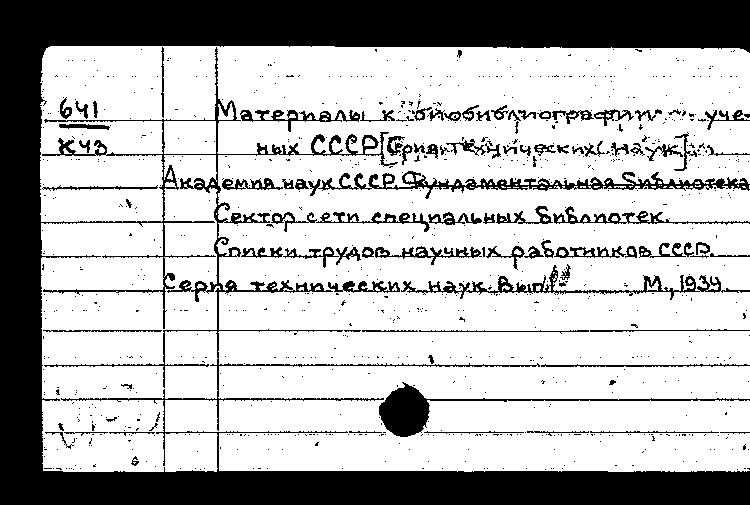 641
К43
Материалы к биобиблиографии уче-
ных СССР [Серия технических наук]
Академия наук СССР. Фундаментальная Библиотека
Сектор сети специальных Библиотек.
Списки трудов научных работников СССР.
Серия технических наук. Вып. М., 1939.